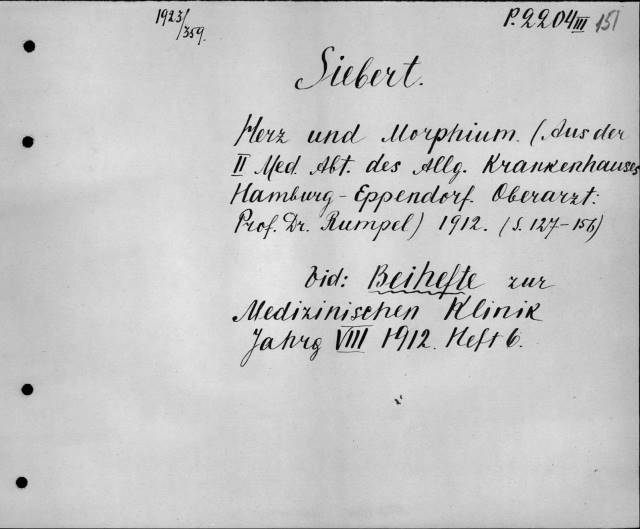 1923/359.
P.2204III 151
Siebert.
Herz und Morphium. (Aus der
II Med. Abt. des Allg. Krankenhauses
Hamburg-Eppendorf. Oberarzt:
Prof. Dr. Rumpel) 1912. (S. 127-156)
Vid: Beihefte zur
Medizinischen Klinik
Jahrg VIII 1912. Heft 6.